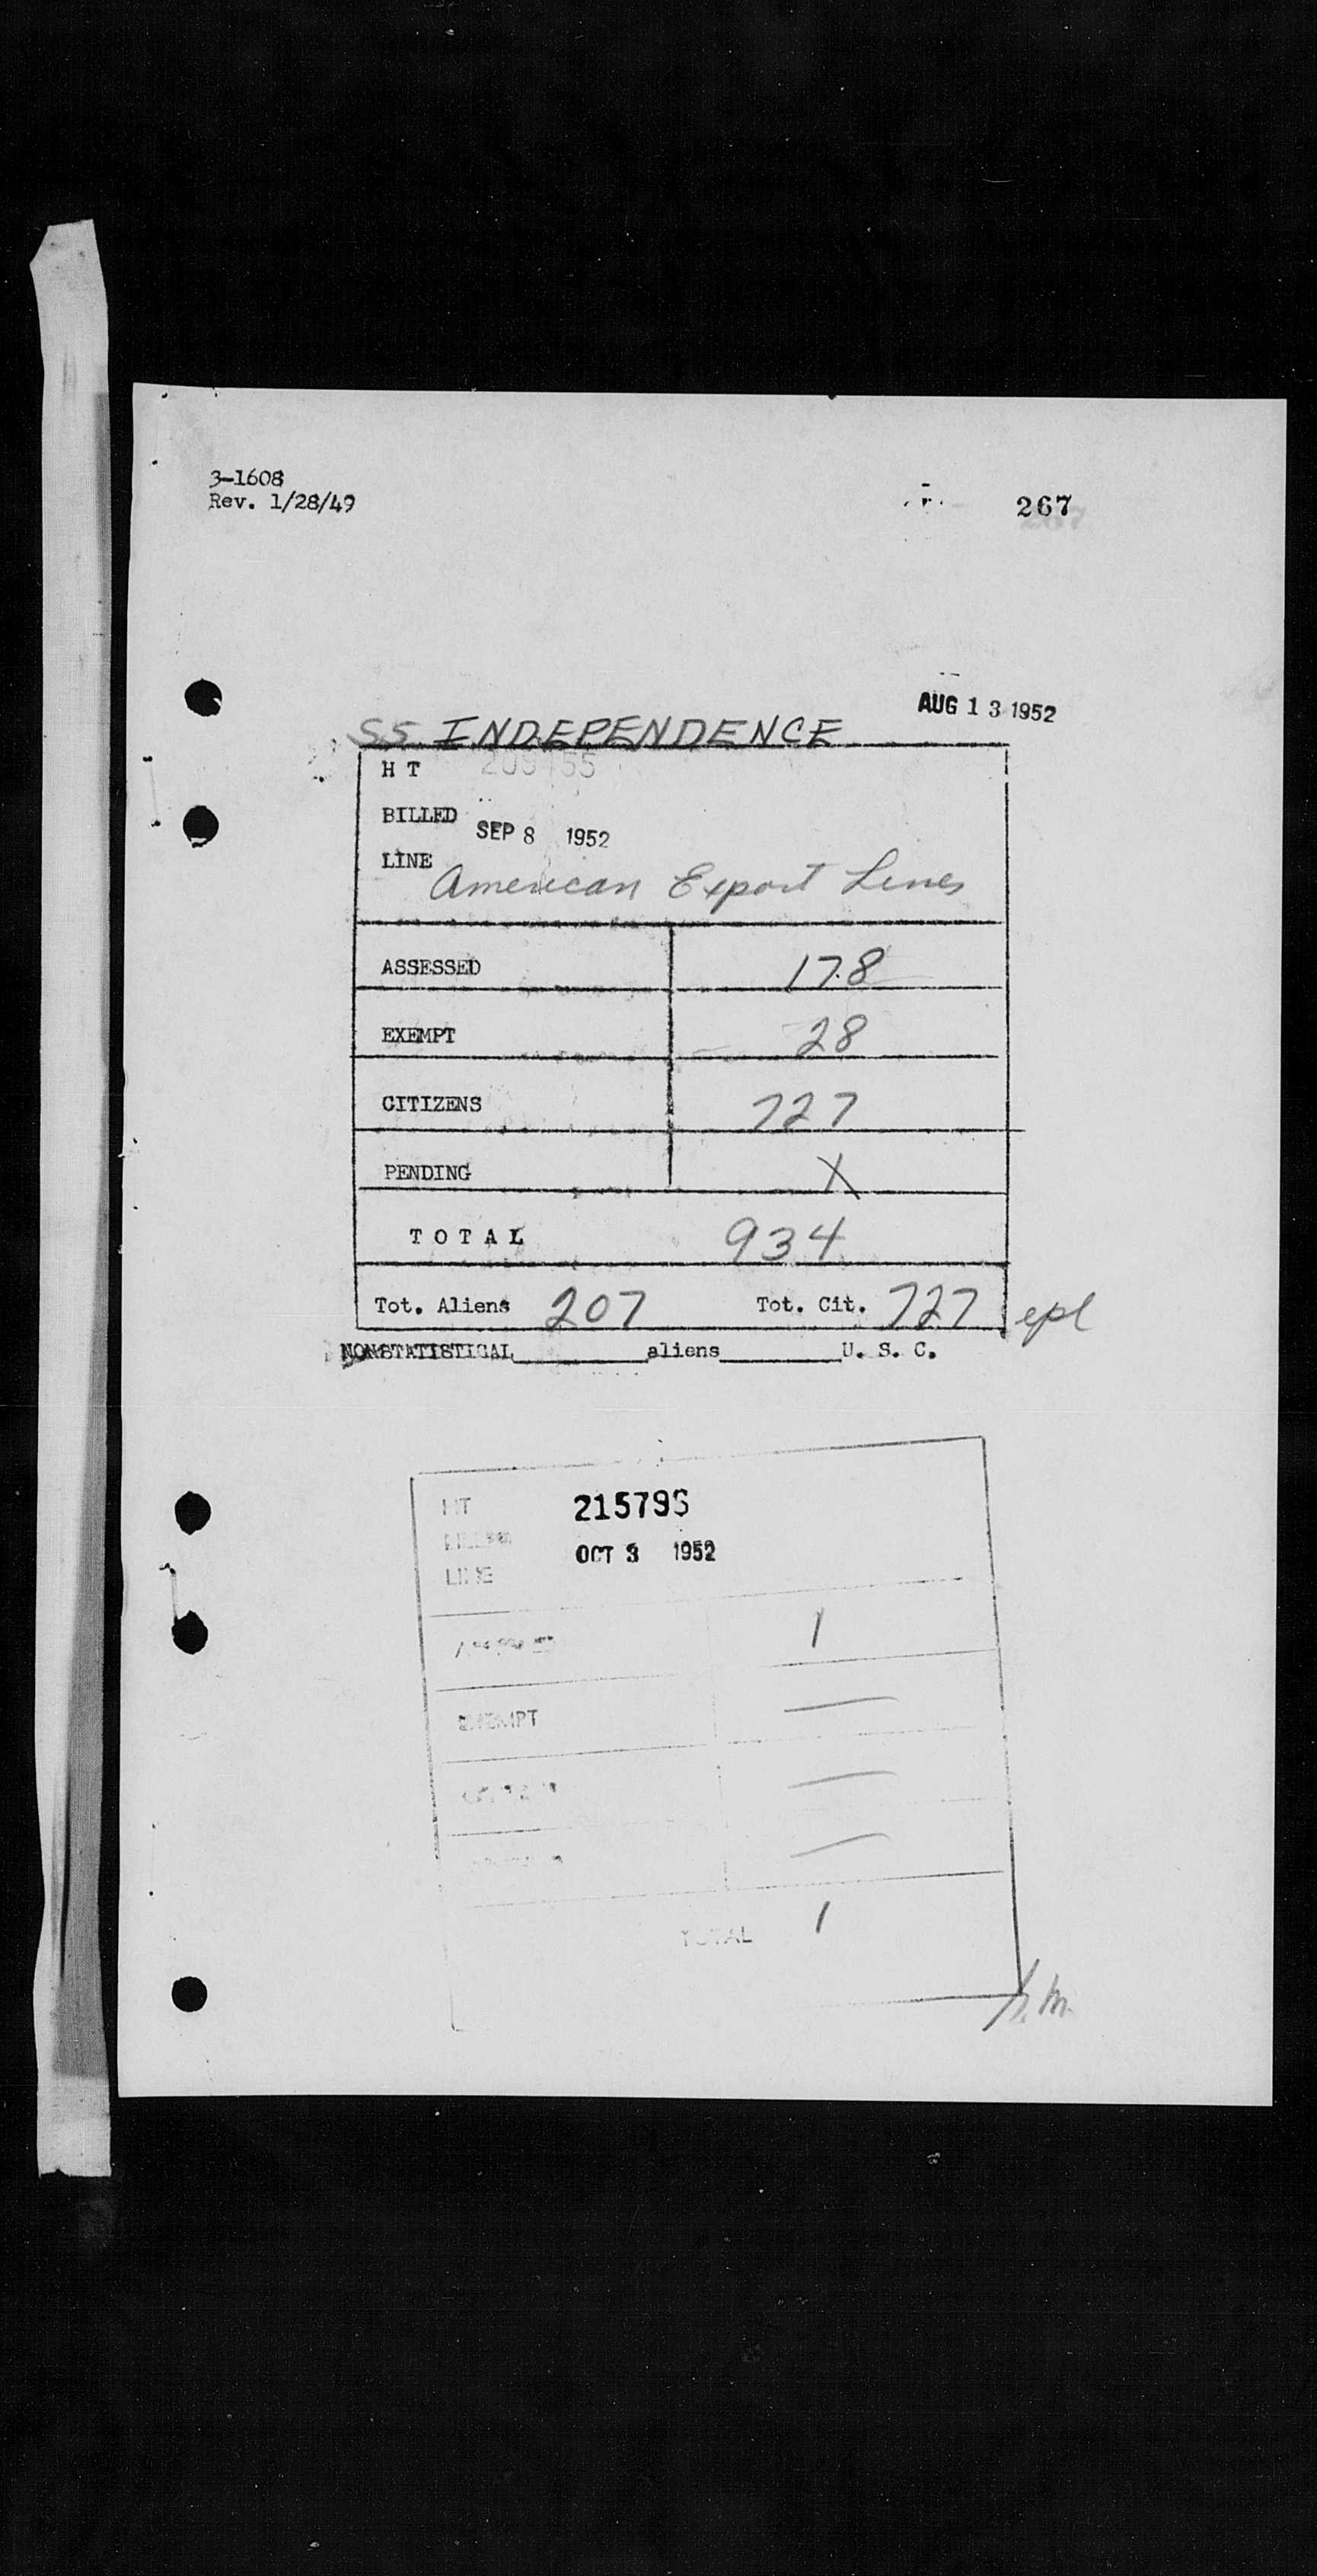 3-1608
Rev. 1/28/49
267
AUG 13 1952
SS INDEPENDENCE
H T
BILLED SEP 8 1952
LINE American Export Lines
ASSESSED 178
EXEMPT 28
CITIZENS 727
PENDING X
TOTAL 934
Tot. Aliens 207 Tot. Cit. 727 epl
NONSTATISTICAL aliens U. S. C.
HT 215796
OCT 3 1952
LINE
1
EXEMPT —
—
—
TOTAL 1